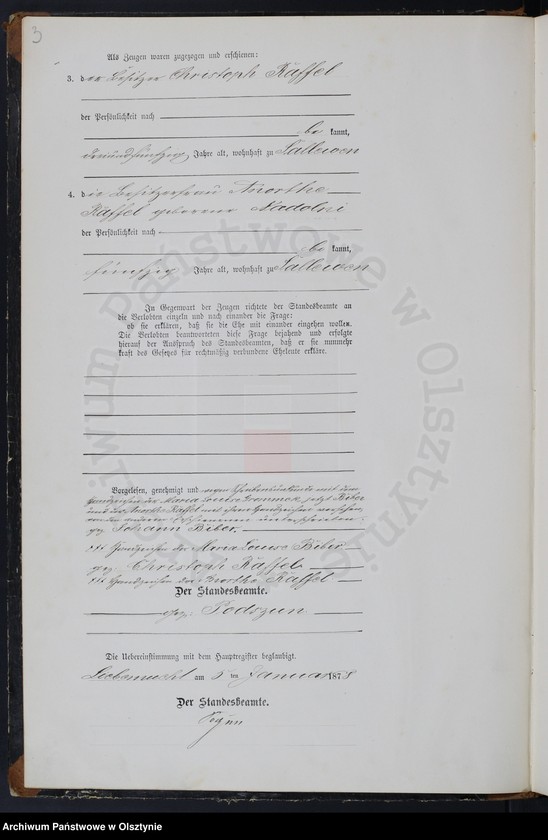 3
Als Zeugen waren zugezogen und erschienen:
3. der Besitzer Christoph Käffel
der Persönlichkeit nach
be kannt,
Jahre alt, wohnhaft zu Sallewen
4. die Besitzerfrau Anorthe
Käffel geborene Nadolni
der Persönlichkeit nach
be kannt,
fünfzig Jahre alt, wohnhaft zu Sallewen
In Gegenwart der Zeugen richtete der Standesbeamte an
die Verlobten einzeln und nach einander die Frage:
ob sie erklären, daß sie die Ehe mit einander eingehen wollen.
Die Verlobten beantworteten diese Frage bejahend und erfolgte
hierauf der Ausspruch des Standesbeamten, daß er sie nunmehr
kraft des Gesetzes für rechtmäßig verbundene Eheleute erkläre.
Vorgelesen, genehmigt und
Handzeichen der Maria Louise jetzt Biber
und der Anorthe Käffel mit ihren Handzeichen versehen,
von den anderen Erschienenen unterschrieben:
gez. Johann Biber.
xxx Handzeichen der Maria Louise Biber
gez. Christoph Käffel
xxx Handzeichen der Anorthe Käffel
Der Standesbeamte.
gez. Podszun
Die Uebereinstimmung mit dem Hauptregister beglaubigt.
Liebemühl am 5 ten Januar 1878
Der Standesbeamte.
Archiwum Państwowe w Olsztynie
Archiwum Państwowe w Olsztynie